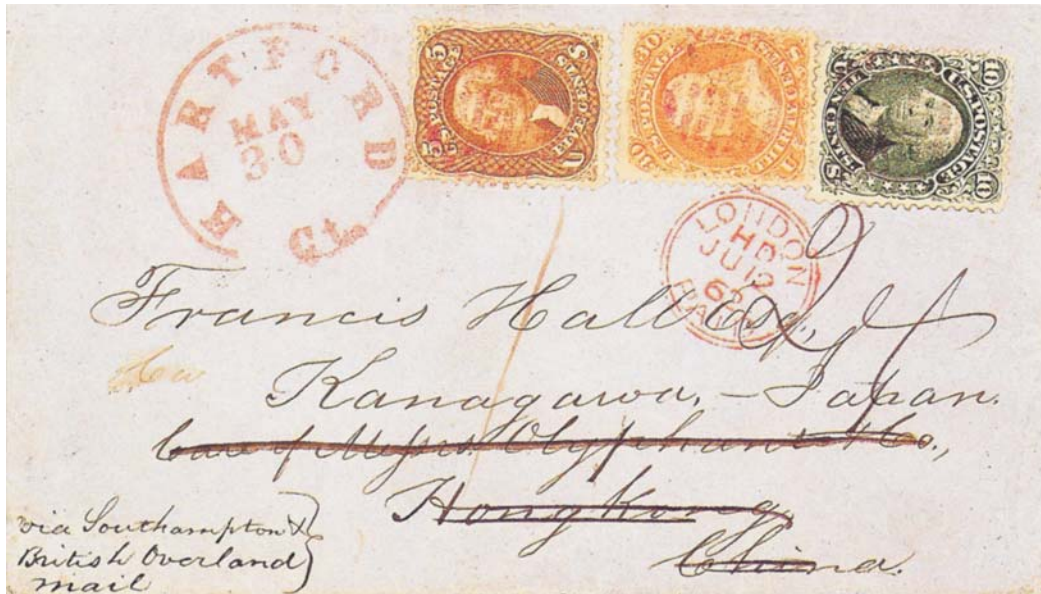 HARTFORD
MAY
30
Ct.
U.S. POSTAGE
5
5
U.S. POSTAGE
30
30
U.S. POSTAGE
TEN CENTS
10
10
LONDON
HD
JU 12
62
PAID
Francis Hall Esq,
Kanagawa, - Japan.
Care of Messrs Olyphant & Co.,
Hong Kong,
China.
via Southampton &
British Overland
mail